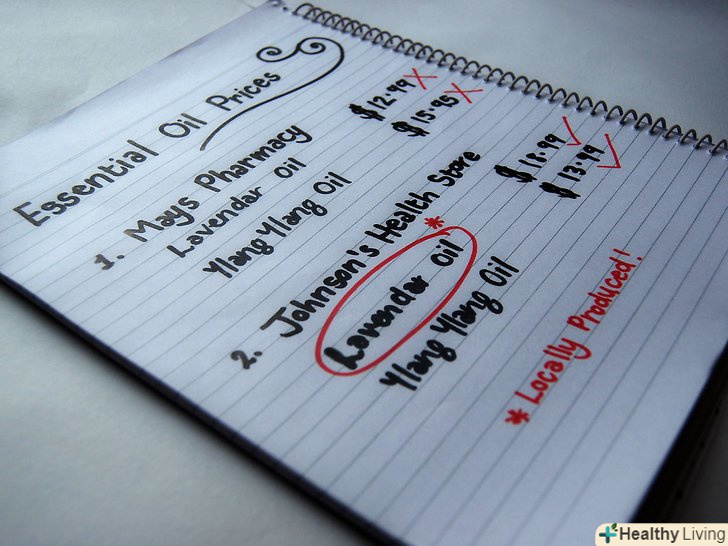 Essential Oil Prices
1. Mays Pharmacy
Lavendar Oil $12.99 X
Ylang Ylang Oil $15.95 X
2. Johnson's Health Store *
Lavendar Oil ✓
Ylang Ylang Oil $13.99 ✓
* Locally Produced!
Healthy Living